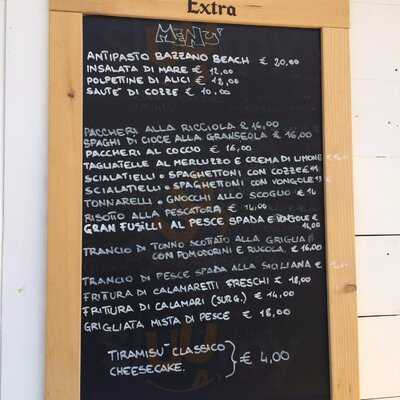 Extra
MENÙ
ANTIPASTO BAZZANO BEACH € 20,00
INSALATA DI MARE € 12,00
POLPETTINE DI ALICI € 12,00
SAUTÈ DI COZZE € 10.00
PACCHERI ALLA RICCIOLA € 16,00
SPAGHI DI CIOCE ALLA GRANSEOLA € 16,00
PACCHERI AL COCCIO € 16,00
TAGLIATELLE AL MERLUZZO E CREMA DI LIMONE
SCIALATIELLI o SPAGHETTONI CON COZZE €
SCIALATIELLI o SPAGHETTONI CON VONGOLE
TONNARELLI o GNOCCHI ALLO SCOGLIO € 14
RISOTTO ALLA PESCATORA € 14,00
GRAN FUSILLI AL PESCE SPADA E VONGOLE €
14,00
TRANCIO DI TONNO SCOTTATO ALLA GRIGLIA
CON POMODORINI E RUCOLA € 16,00
TRANCIO DI PESCE SPADA ALLA SICILIANA €
FRITTURA DI CALAMARETTI FRESCHI € 18,00
FRITTURA DI CALAMARI (SURG.) € 14,00
GRIGLIATA MISTA DI PESCE € 18,00
TIRAMISÙ CLASSICO
CHEESECAKE. } € 4,00